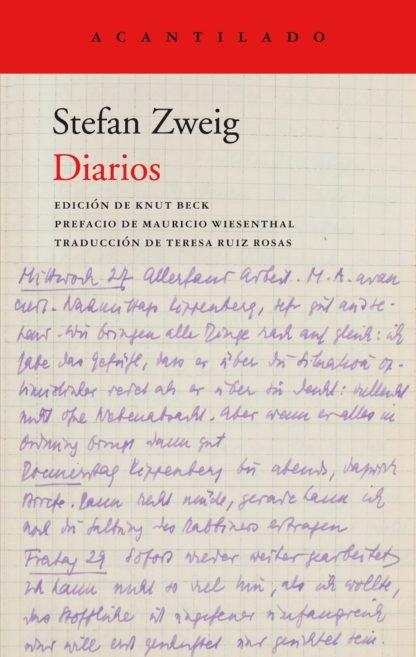 ACANTILADO
Stefan Zweig
Diarios
EDICIÓN DE KNUT BECK
PREFACIO DE MAURICIO WIESENTHAL
TRADUCCIÓN DE TERESA RUIZ ROSAS
Mittwoch 27 Allerhand Arbeit. M. A.
Nachmittags Kippenberg, sehr gut
Wir bringen alle Dinge auf gleich: ich
habe das Gefühl, dass er über die Situation
als er über sie denkt: vielleicht
nicht ohne Nebenabsicht. Aber wenn er alles in
Ordnung bringt dann gut
Donnerstag Kippenberg bis abends,
Dann recht müde, gerade kann ich
noch die des Rabbiners ertragen
Freitag 29 Sofort wieder weiter gearbeitet
Ich kann nicht so viel tun, als ich wollte,
das Stoffliche ist umfangreich
und will erst und gesichtet sein.